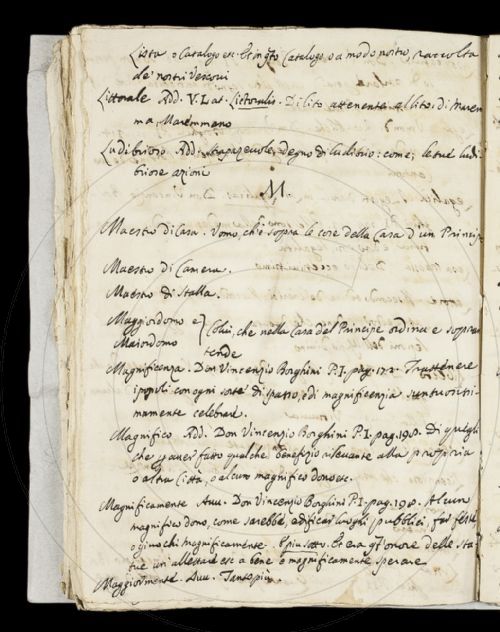 Lista o Catalogo etc. Et in qto Catalogo, o a modo nostro, raccolta
de' nostri Vescovi
Littorale Add. V. Lat. Littoralis. Di lito attenente al lito. di Marem
ma, Maremmano
Ludibrioso Add. strapazzevole, degno di ludibrio: come, le tue ludi
briose azioni
M.
Maestro di Casa. Uomo, ch'è sopra le cose della Casa d'un Principe
Maestro di Camera.
Maestro di Stalla.
Maggiordomo e
Maiordomo } Colui, che nella Casa del Principe ordina e soprin
tende
Magnificenza. Don Vincenzio Borghini P.I. pag. 172. Trattenere
i popoli con ogni sorte di spasso, e di magnificenzia suntuositi
mamente celebrare.
Magnifico Add. Don Vincenzio Borghini P.I. pag. 198. Di quegli
che p aver fatto qualche benefizio rilevante alla propria
o altra Città, o alcun magnifico dono etc.
Magnificamente Avv. Don Vincenzio Borghini P.I. pag. 198. Alcun
magnifico dono, come sarebbe edificar luoghi pubblici, far feste
o giuochi magnificamente. E più sotto. Et era qto onore delle sta
tue un'allettare etc. a bene e magnificamente sperare
Maggiormente Avv. Tanto più.